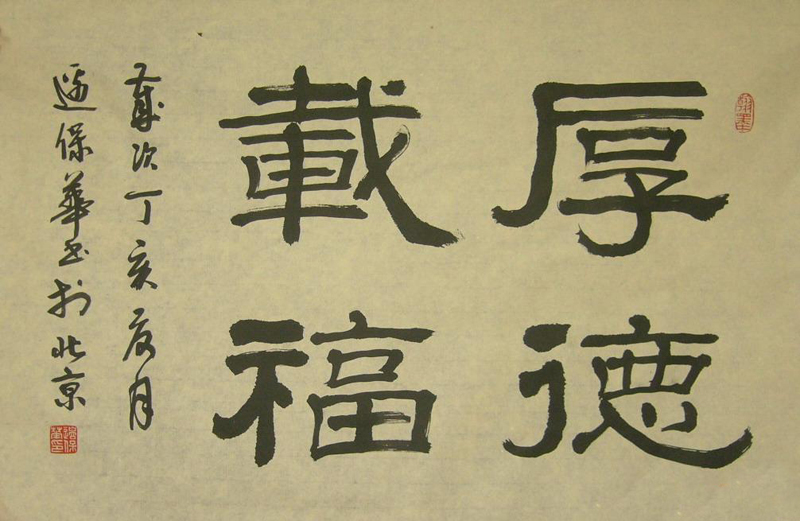 厚德
載福
歲次丁亥月
保華书於北京